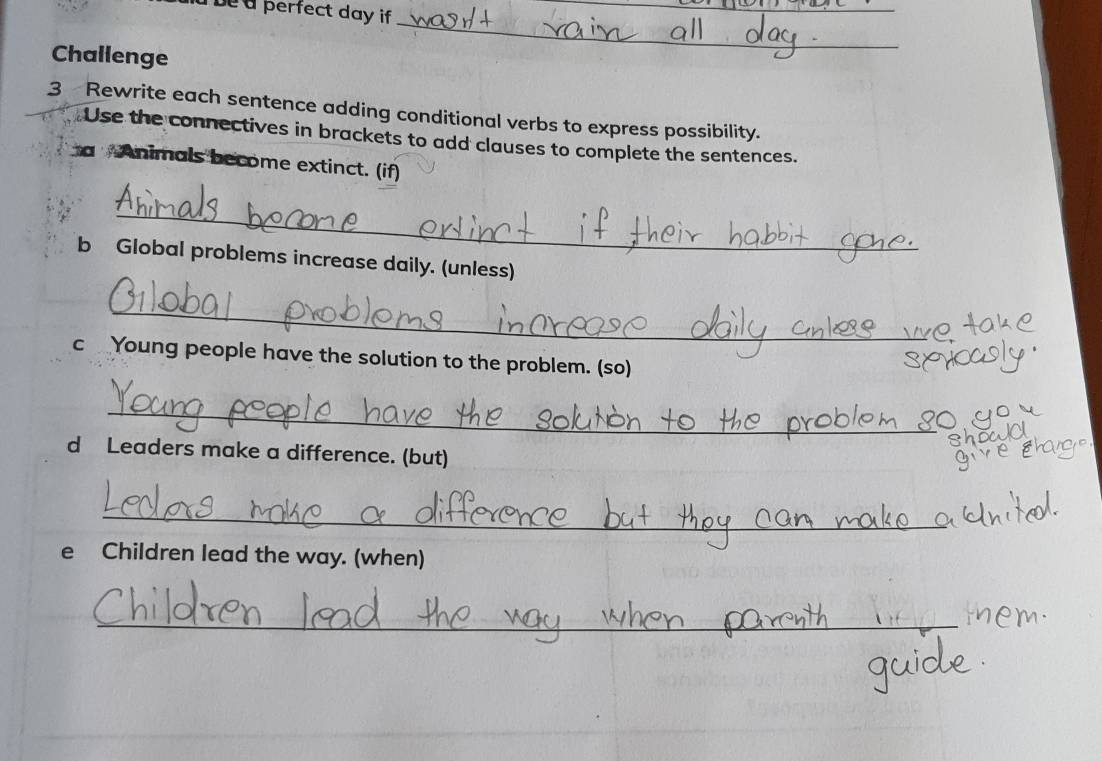 be a perfect day if wasn't rain all day.
Challenge
3 Rewrite each sentence adding conditional verbs to express possibility.
Use the connectives in brackets to add clauses to complete the sentences.
a Animals become extinct. (if)
Animals become extinct if their habbit gone.
b Global problems increase daily. (unless)
Global problems increase daily unless we take
seriously.
c Young people have the solution to the problem. (so)
Young people have the solution to the problem so you
should
give change.
d Leaders make a difference. (but)
Leders make a difference but they can make a united.
e Children lead the way. (when)
Children lead the way when parenth them.
guide.